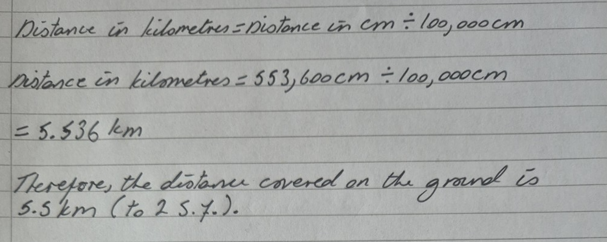 Distance in kilometres = Distance in cm ÷ 100,000cm
Distance in kilometres = 553,600cm ÷ 100,000cm
= 5.536 km
Therefore, the distance covered on the ground is
5.5 km (to 2 s.f.).